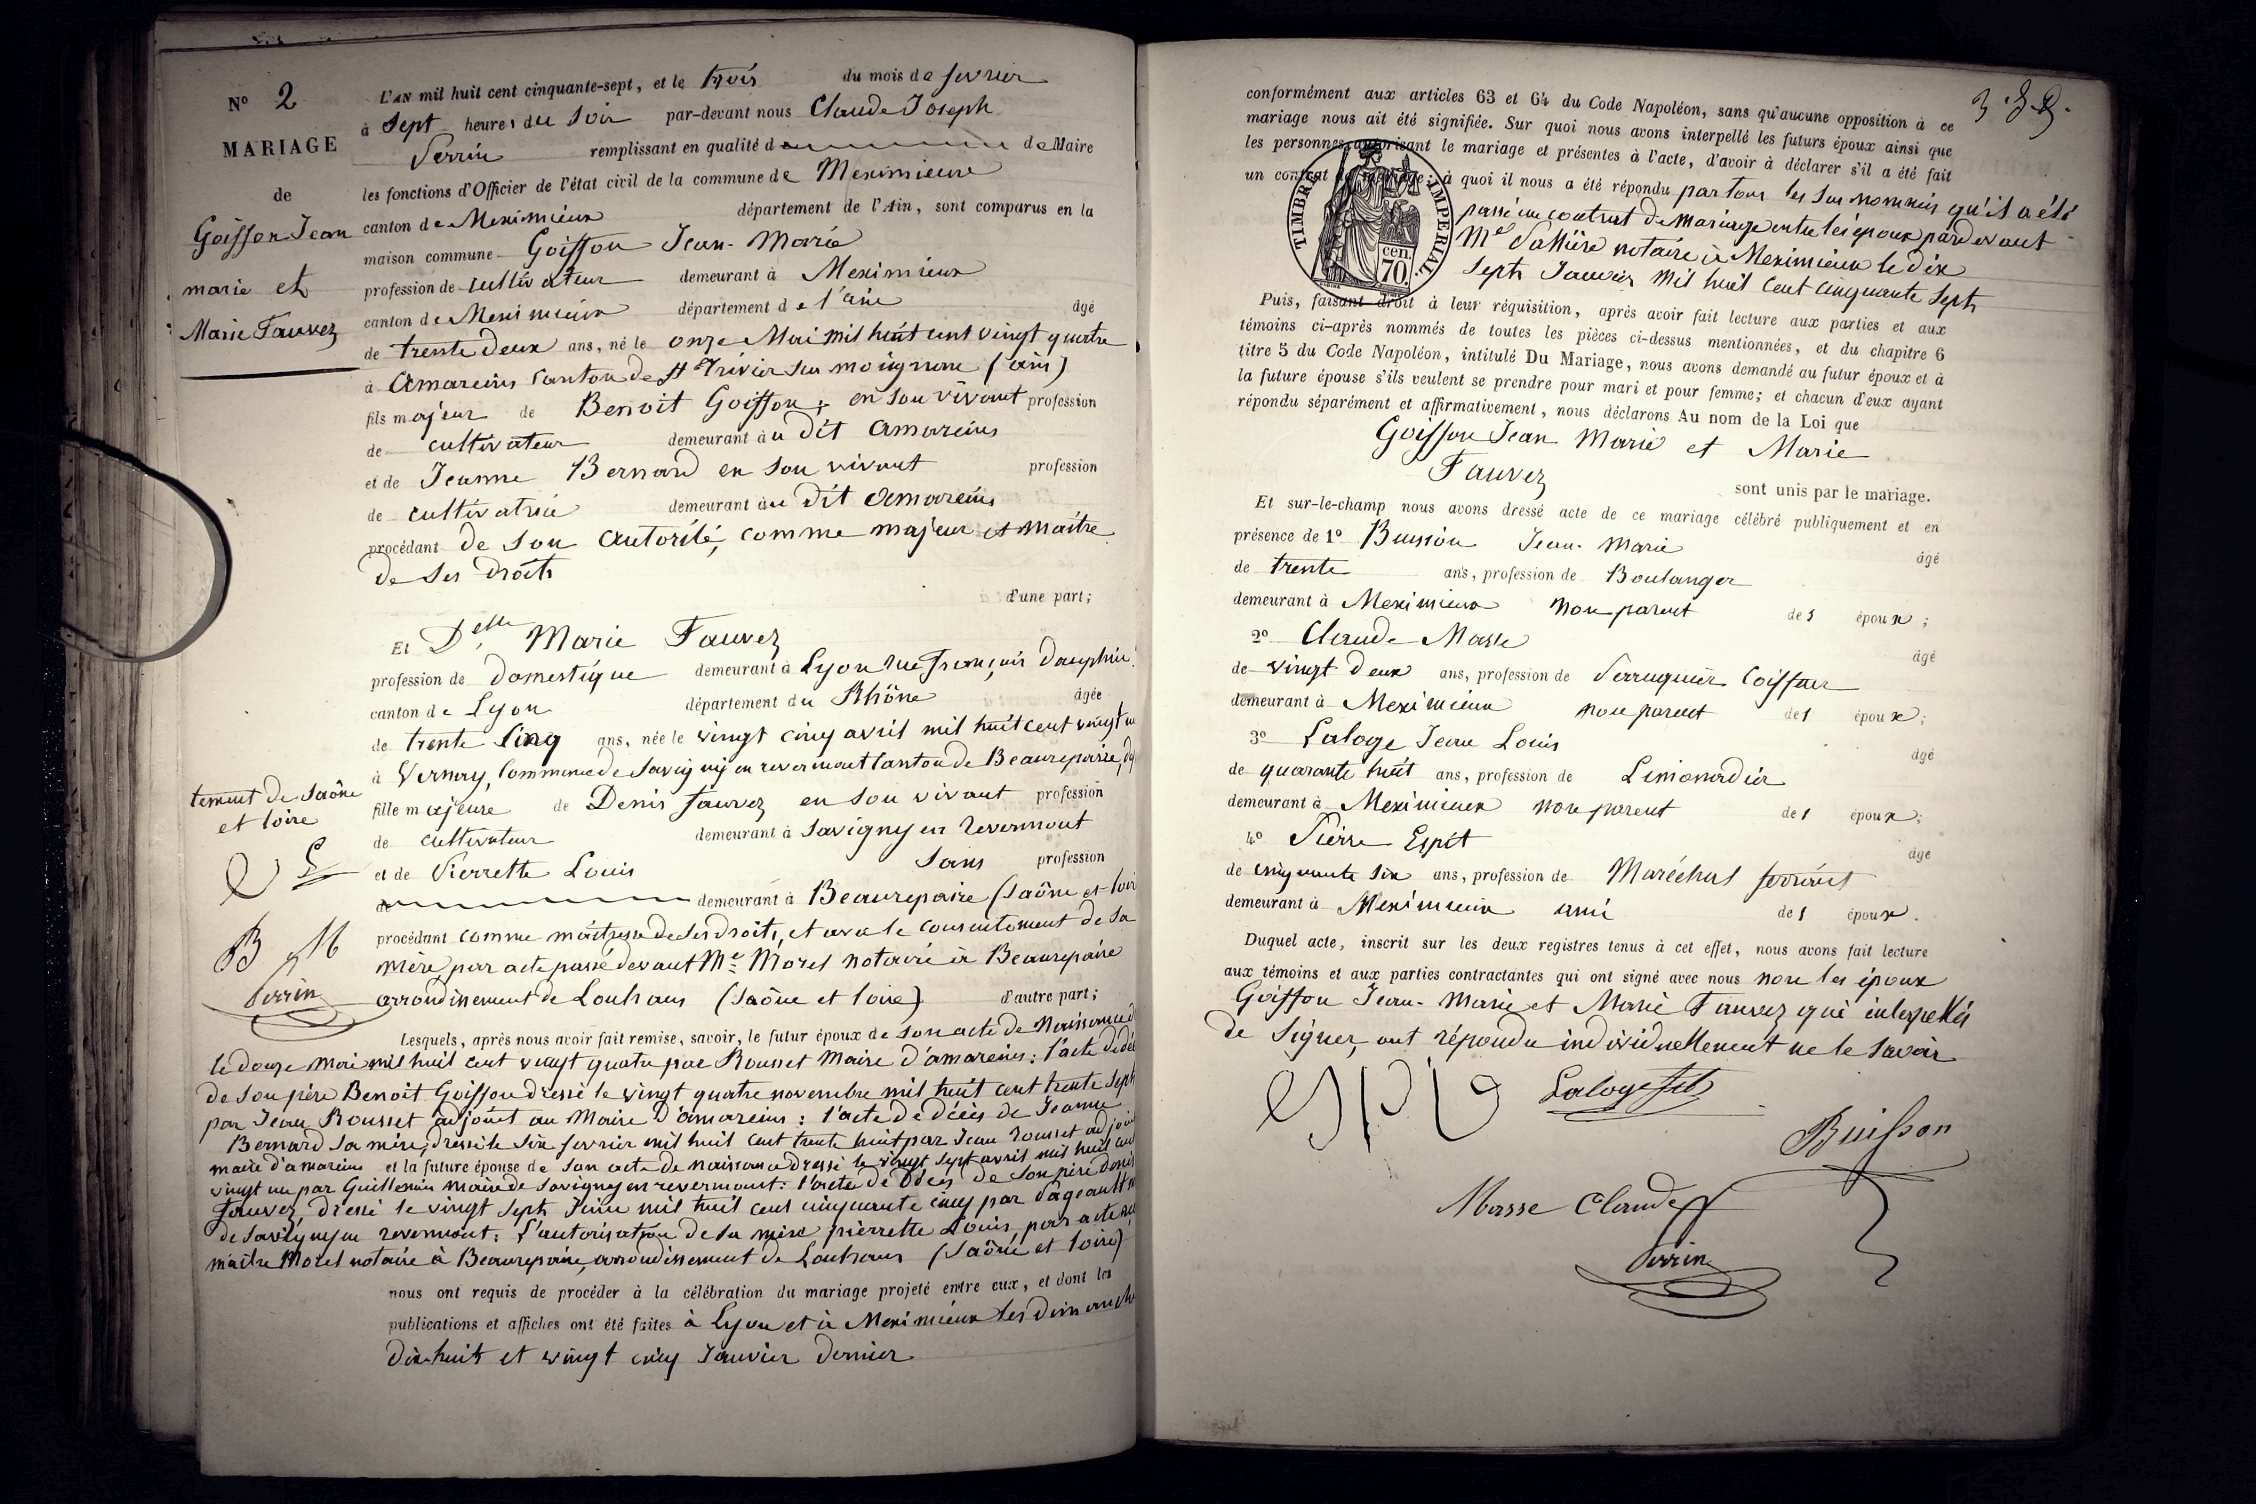 N° 2
MARIAGE
de
Goiffon Jean
marie et
Marie Fauvez
L'AN mil huit cent cinquante-sept, et le trois du mois de fevrier
à Sept heures du Soir par-devant nous Claude Joseph
Perrin remplissant en qualité d de Maire
les fonctions d'Officier de l'état civil de la commune de Meximieux
canton de Meximieux département de l'Ain, sont comparus en la
maison commune Goiffon Jean-Marie
profession de cultivateur demeurant à Meximieux
canton de Meximieux département de l'ain âgé
de trente deux ans, né le onze Mai mil huit cent vingt quatre
à Amareins Canton de St Trivier sur moignans (ain)
fils majeur de Benoit Goiffon, en son vivant profession
de cultivateur demeurant au dit Amareins
et de Jeanne Bernard en son vivant profession
de cultivatrice demeurant au dit Amareins
procédant de son Autorité, comme majeur et maitre
de ses droits
d'une part;
Et Delle Marie Fauvez
profession de domestique demeurant à Lyon rue françois Dauphin
canton de Lyon département du Rhône âgée
de trente Cinq ans, née le vingt cinq avril mil huit cent vingt un
à Vernay, Commune de Savigny en revermont Canton de Beaurepaire, dép
tement de Saône
et loire
fille majeure de Denis fauvez en son vivant profession
de cultivateur demeurant à Savigny en revermont
et de Pierrette Louis Sans profession
de demeurant à Beaurepaire (Saône et loire
procédant comme maitresse de ses droits, et avec le consentement de sa
mère, par acte passé devant Me Morel notaire à Beaurepaire
arrondissement de Louhans (Saône et loire) d'autre part;
B M
Perrin
Lesquels, après nous avoir fait remise, savoir, le futur époux de son acte de Naissance d
le douze mai mil huit cent vingt quatre par Rousset Maire d'amareins: l'acte de déc
de son père Benoit Goiffon dressé le vingt quatre novembre mil huit cent trente sept
par Jean Rousset adjoint au Maire d'amareins: l'acte de décès de Jeanne
Bernard sa mère, dressé le six fevrier mil huit cent trente huit par Jean rousset adjoint
maire d'amareins et la future épouse de son acte de naissance dressé le vingt sept avril mil huit cent
vingt un par Guillemin maire de Savigny en revermont: l'acte de décès de son père denis
fauvez, dressé le vingt sept Juin mil huit cent cinquante cinq par Pageault m
de Savigny en revermont: l'autorisation de sa mère pierrette Louis, par acte
maitre Morel notaire à Beaurepaire, arrondissement de Louhans (Saône et loire)
nous ont requis de procéder à la célébration du mariage projeté entre eux, et dont les
publications et affiches ont été faites à Lyon et à Meximieux les dimanche
dix-huit et vingt cinq Janvier dernier
conformément aux articles 63 et 64 du Code Napoléon, sans qu'aucune opposition à ce
mariage nous ait été signifiée. Sur quoi nous avons interpellé les futurs époux ainsi que
les personnes autorisant le mariage et présentes à l'acte, d'avoir à déclarer s'il a été fait
un contrat de mariage; à quoi il nous a été répondu par tous les sus nommés qu'il a été
passé un contrat de mariage entre les époux pardevant
Me Vattière notaire à Meximieux le dix
Sept Janvier mil huit cent cinquante Sept
TIMBRE IMPERIAL
cen.
70.
Puis, faisant droit à leur réquisition, après avoir fait lecture aux parties et aux
témoins ci-après nommés de toutes les pièces ci-dessus mentionnées, et du chapitre 6
titre 5 du Code Napoléon, intitulé Du Mariage, nous avons demandé au futur époux et à
la future épouse s'ils veulent se prendre pour mari et pour femme; et chacun d'eux ayant
répondu séparément et affirmativement, nous déclarons Au nom de la Loi que
Goiffon Jean Marie et Marie
Fauvez
sont unis par le mariage.
Et sur-le-champ nous avons dressé acte de ce mariage célébré publiquement et en
présence de 1° Buisson Jean-Marie âgé
de trente ans, profession de Boulanger
demeurant à Meximieux Non parent des époux;
2° Claude Masse âgé
de vingt deux ans, profession de Perruquier Coiffeur
demeurant à Meximieux non parent des époux;
3° Laloge Jean Louis âgé
de quarante huit ans, profession de Limonadier
demeurant à Meximieux non parent des époux;
4° Pierre Espit âgé
de cinquante six ans, profession de Maréchal ferrant
demeurant à Meximieux ami des époux.
Duquel acte, inscrit sur les deux registres tenus à cet effet, nous avons fait lecture
aux témoins et aux parties contractantes qui ont signé avec nous non les époux
Goiffon Jean-Marie et Marie Fauvez qui interpellés
de signer, ont répondu individuellement ne le savoir
Buisson
Masse Claude
Perrin